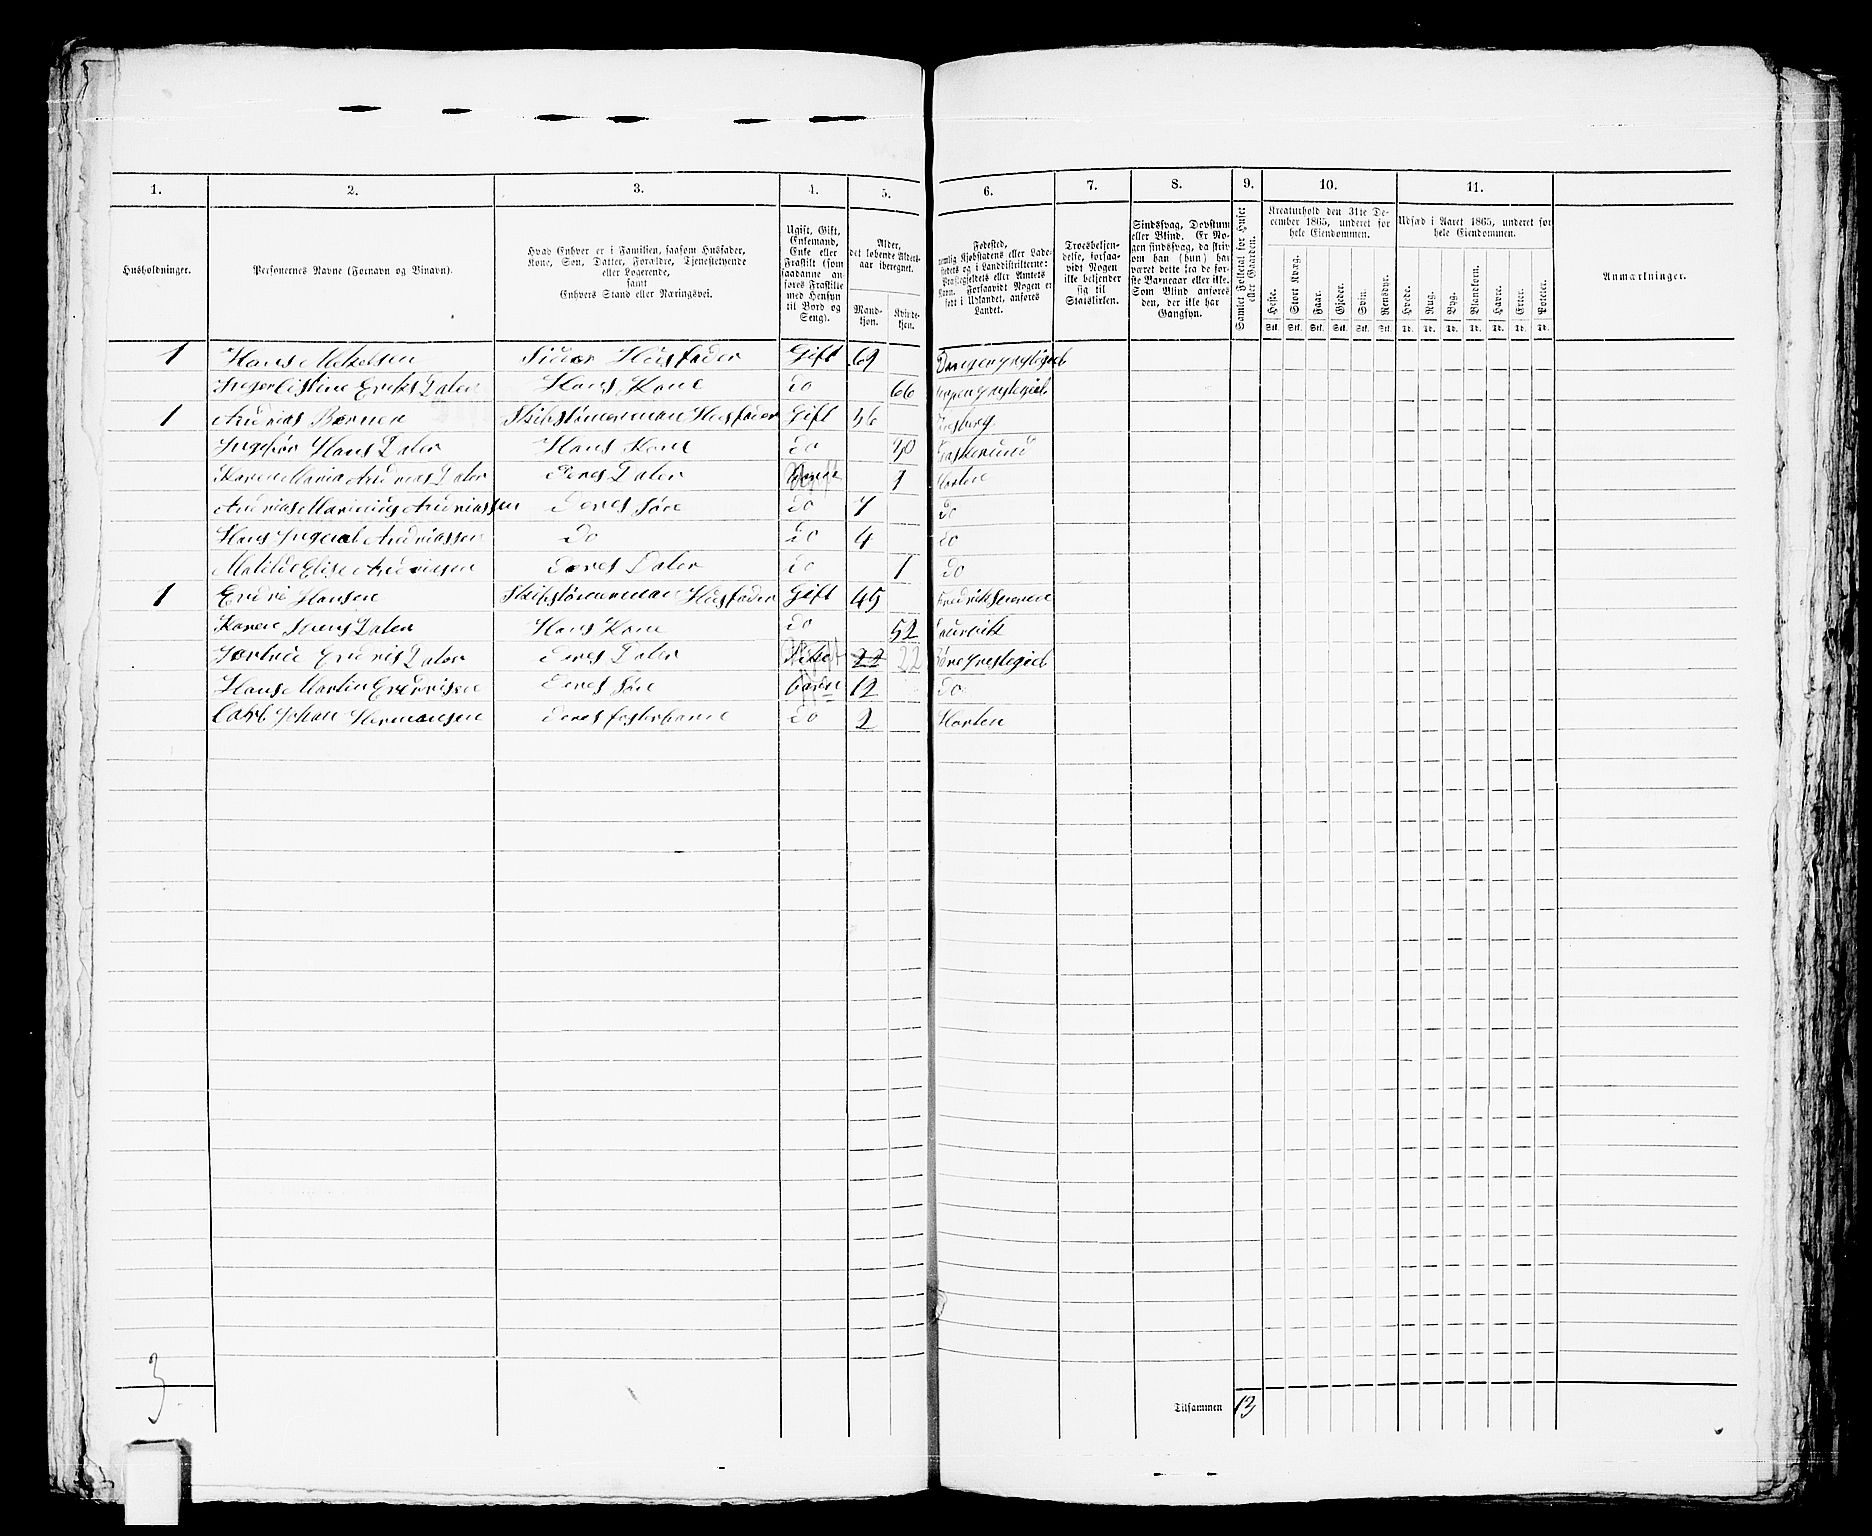 1. 2. 3. 4. 5. 6. 7. 8. 9. 10. 11.
Husholdninger.
Personernes Navne (Fornavn og Binavn).
Hvad Enhver er i Familien, saasom Husfader,
Kone, Søn, Datter, Forældre, Tjenestetyende
eller Logerende,
samt
Enhvers Stand eller Næringsvei.
Ugift, Gift,
Enkemand,
Enke eller
Fraskilt (som
saadanne an-
føres Fraskilte
med Hensyn
til Bord og
Seng).
Alder,
det løbende Alders-
aar iberegnet.
Mand-
kjøn.
Kvinde-
kjøn.
Fødested,
nemlig Kjøbstadens eller Lade-
stedets og i Landdistrikterne:
Præstegjeldets eller Amtets
Navn. Forsaavidt Nogen er
født i Udlandet, anføres
Landet.
Troesbekjen-
delse, forsaa-
vidt Nogen
ikke bekjender
sig til
Statskirken.
Sindssvag, Døvstum
eller Blind. Er No-
gen sindssvag, da skriv
om han (hun) har
været dette fra de før-
ste Barneaar eller ikke.
Som Blind anføres
den, der ikke har
Gangsyn.
Samlet Folketal for Huset
eller Gaarden.
Kreaturhold den 31te De-
cember 1865, underet for
hele Eiendommen.
Heste. Stort Kvæg. Faar. Gjeder. Svin. Rensdyr.
Stk. Stk. Stk. Stk. Stk. Stk.
Udsæd i Aaret 1865, underet for
hele Eiendommen.
Hvede. Rug. Byg. Blandkorn. Havre. Erter. Poteter.
Td. Td. Td. Td. Td. Td. Td.
Anmærkninger.
1 Hans Mikelsen Husfader Gift 69
Eriks Dater Hans Kone Do 66
1 Andrias Skibstømerman Husfader Gift 36
Hans Dater Hans Kone Do 30
Karen Maria Andrias Dater Deres Dater Ugift 1 Horten
Andrias Marinius Andriassen Deres Søn Do 7 Do
Hans Andriassen Do Do 4 Do
Matilde Elise Andriesen Deres Dater Do 1 Do
1 Endre Hansen Skibstømerman Husfader Gift 45 Fredriksværen
Karen Jens Dater Hans Kone Do 52 Laurvik
Dater Deres Dater Ugift 22 22
Hans Martin Deres Søn 12 Do
Carl Johan Hermansen Deres fosterbarn Do 2 Horten
3
Tilsammen 13